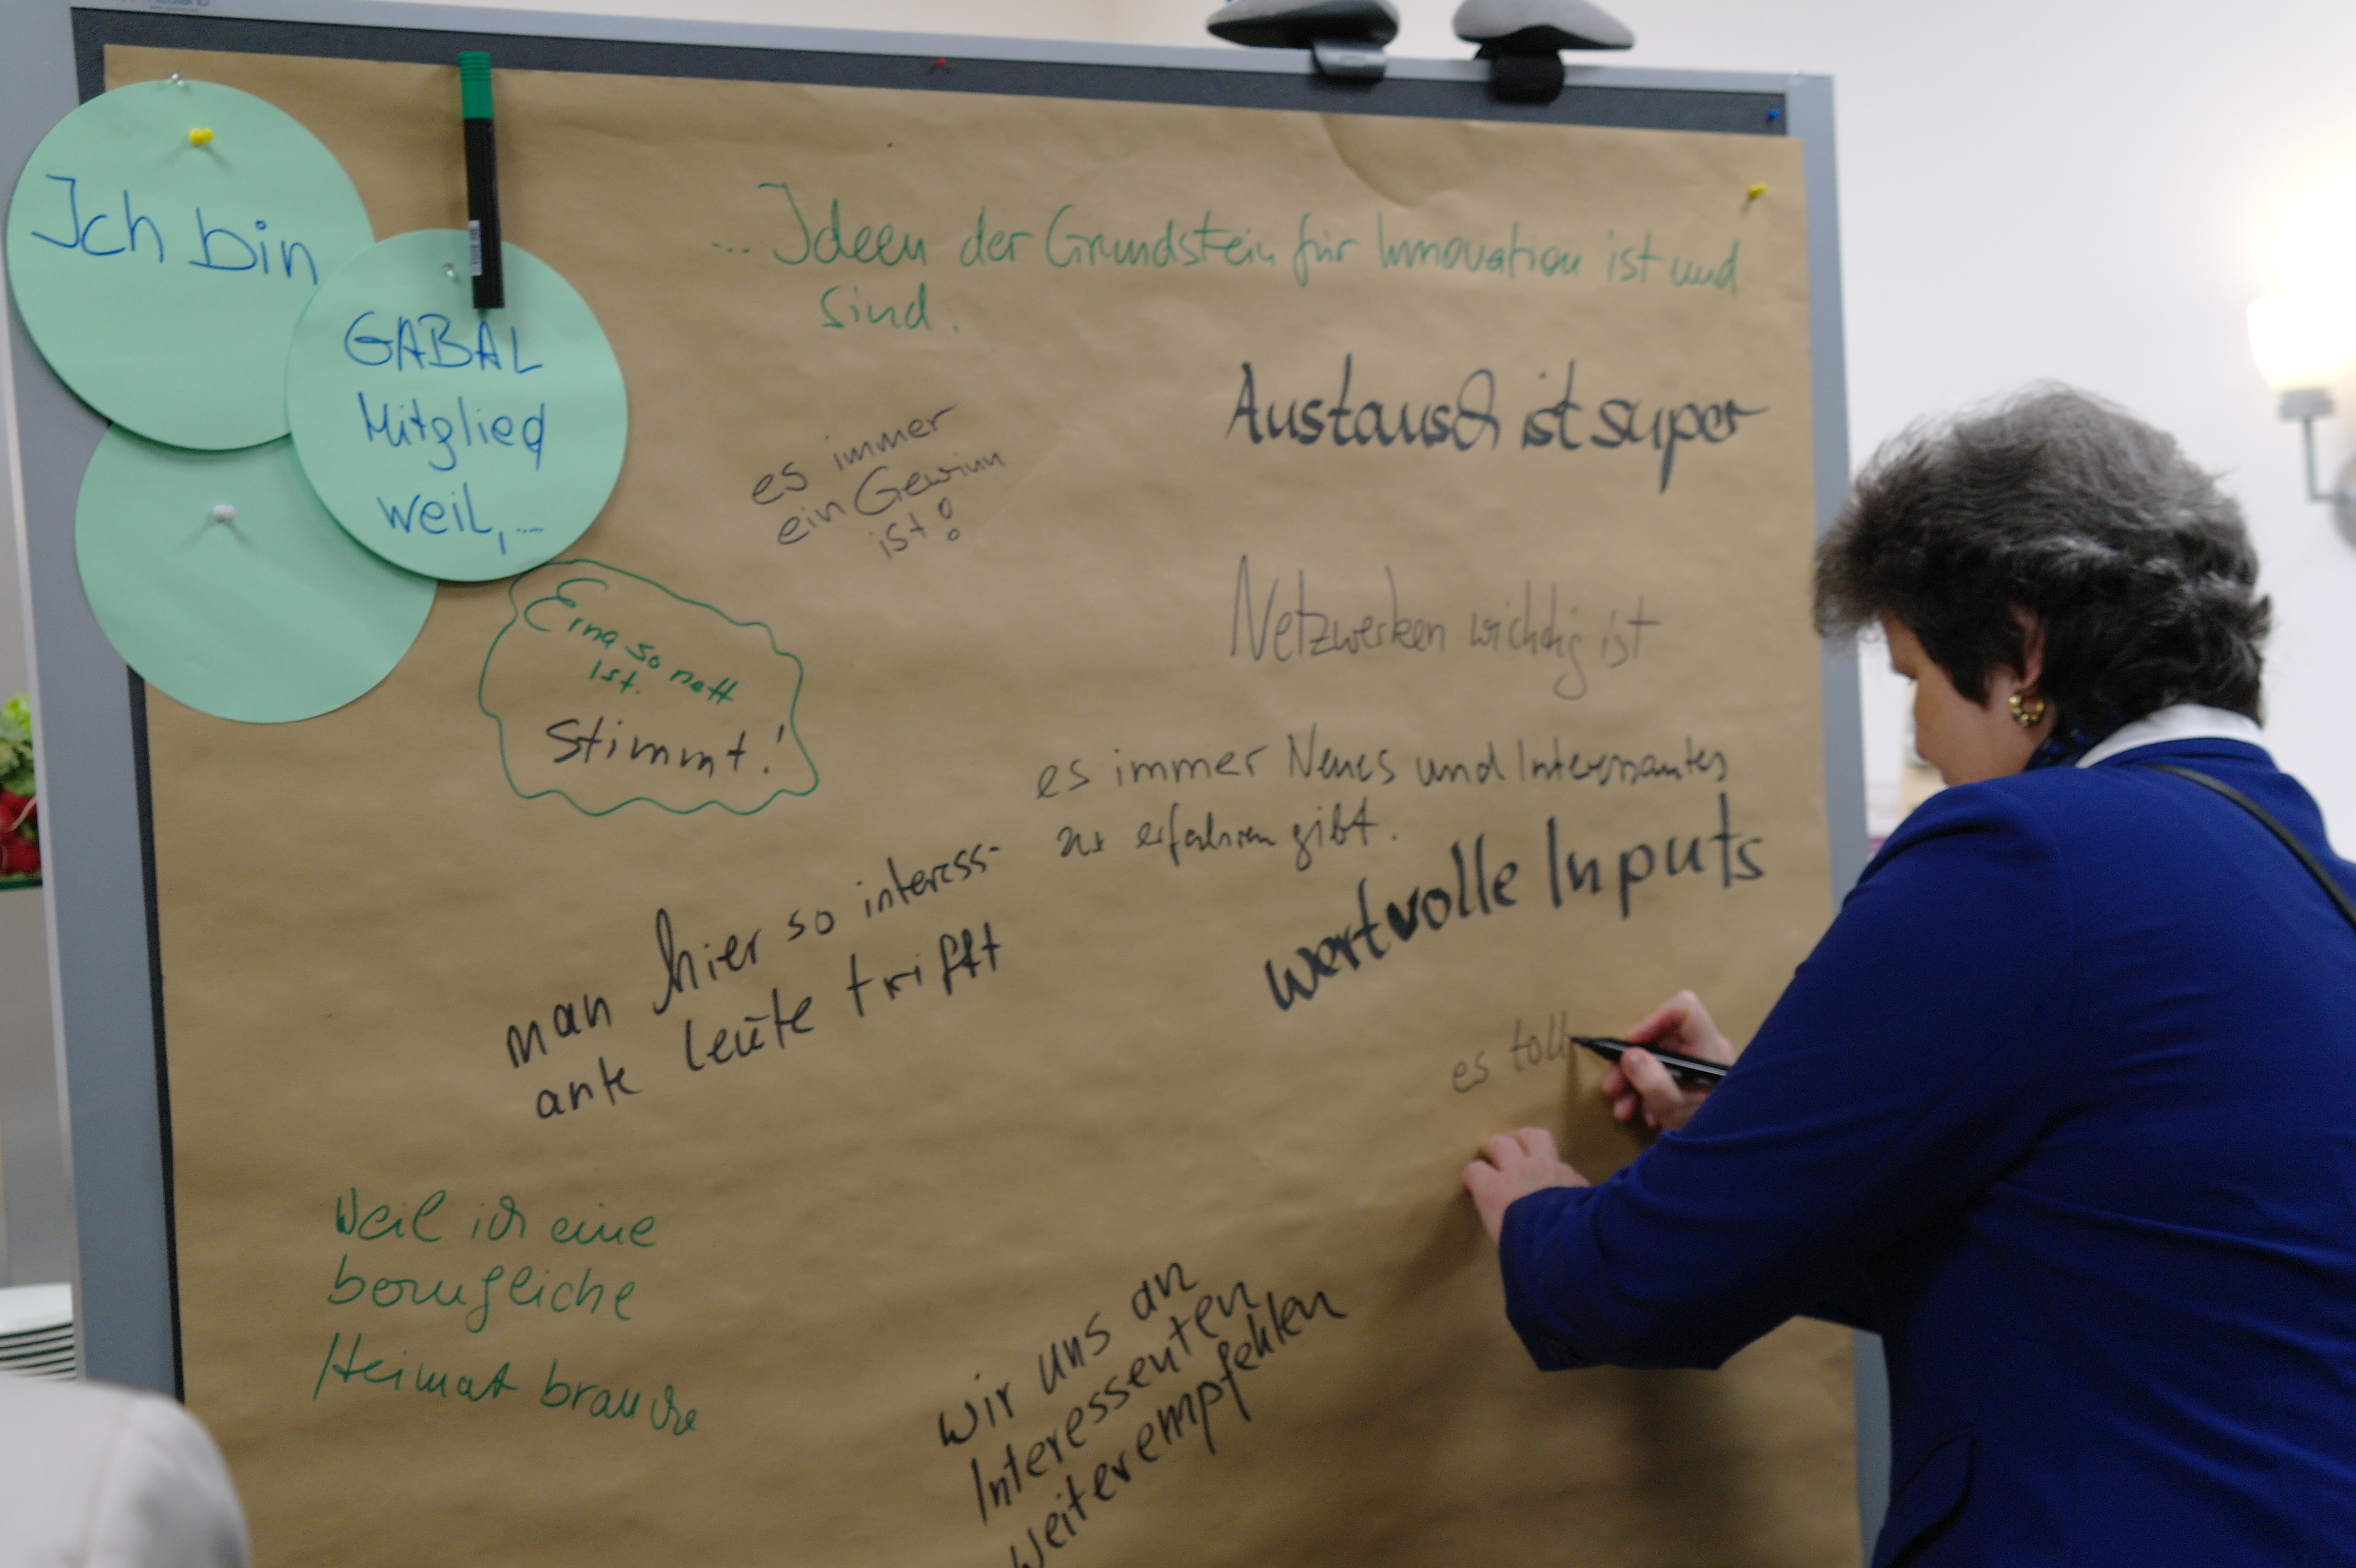 Ich bin
GABAL
Mitglied
weil,...
... Ideen der Grundstein für Innovation ist und
sind.
Austausch ist super
es immer
ein Gewinn
ist!
Netzwerken wichtig ist
Erna so nett
ist.
Stimmt!
es immer Neues und Interessantes
zu erfahren gibt.
man hier so interess-
ante leute trifft
wertvolle Inputs
es toll
Weil ich eine
berufliche
Heimat brauche
wir uns an
Interessenten
weiterempfehlen